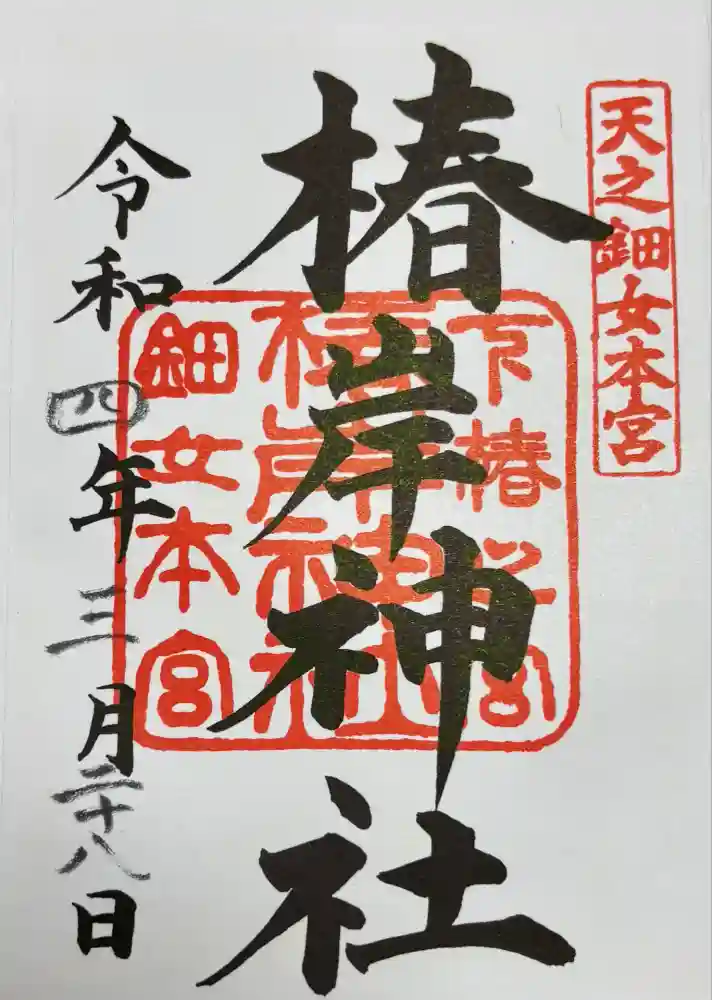 天之鈿女本宮
椿岸神社
鈿女本宮
令和四年三月二十八日